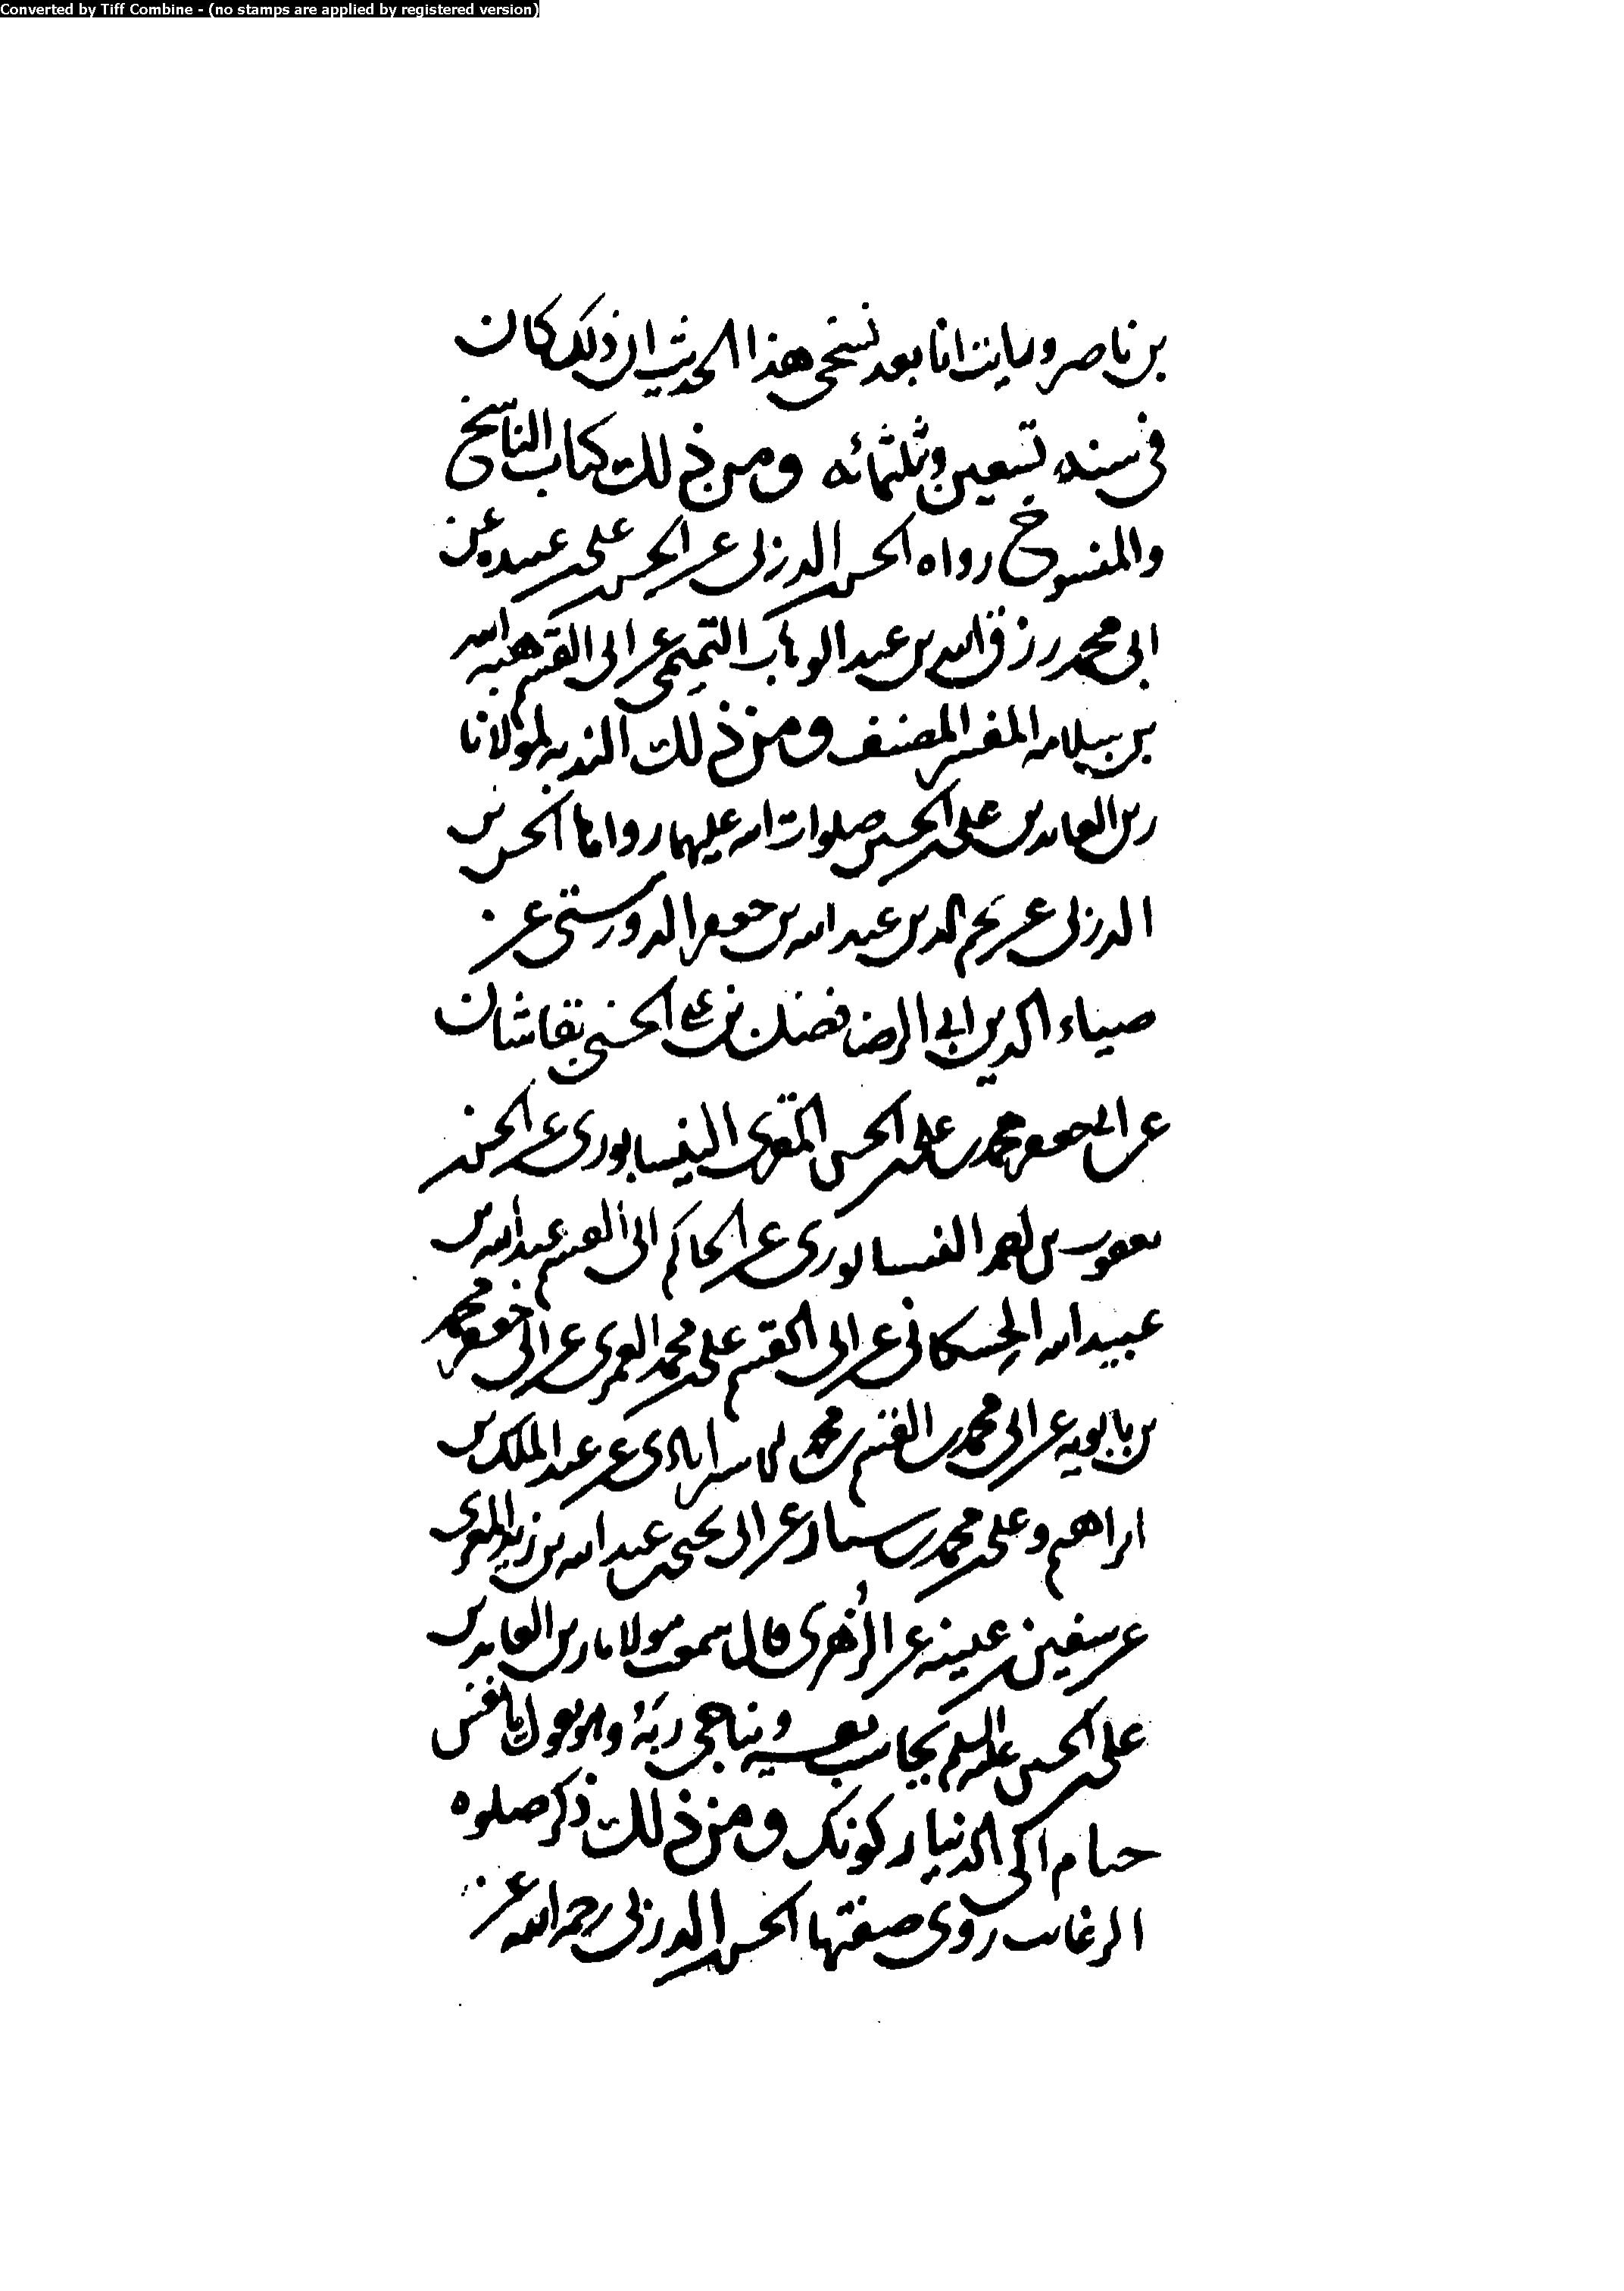 Converted by Tiff Combine - (no stamps are applied by registered version)
بن ناصر ورايت انا بعد نسخي هذا الحديث ان ذلك كان
في سنه تسعين وثلثمائه ومن ذلك كتاب الناسخ
والمنسوخ رواه الحسن الدربي عن الحسن علي عبيده عن
ابي محمد رزق الله بن عبد الوهاب التميمي عن ابي القسم هبه الله
بن سلامه المفسر المصنف ومن ذلك الندبه لمولانا
زين العابدين علي بن الحسين صلوات الله عليهما رواها الحسن بن
الدربي عن نجم الدين عبد الله بن جعفر الدورستي عن
ضياء الدين ابي الرضا فضل الله بن علي الحسني بقاشان
عن ابي جعفر محمد بن علي بن الحسن المقري النيسابوري عن الحسن بن
يعقوب بن احمد النيسابوري عن الحاكم ابي القسم عبد الله بن
عبيد الله الحسكاني عن ابي القسم علي بن محمد العمري عن ابي جعفر محمد
بن بابويه عن ابي محمد بن القسم بن محمد الاسترابادي عن عبد الملك بن
ابراهيم وعلي بن محمد بن سنان عن ابي يحيى بن عبد الله بن زيد المقري
عن سفين بن عيينه عن الزهري قال سمعت مولانا زين العابدين
علي بن الحسين عليه السلم يحاسب نفسه ويناجي ربه وهو يقول يا نفس
حتام الى الدنيا ركونك ومن ذلك ذكر صلوه
الرغائب روى صفتها الحسن الدربي رحمه الله عن